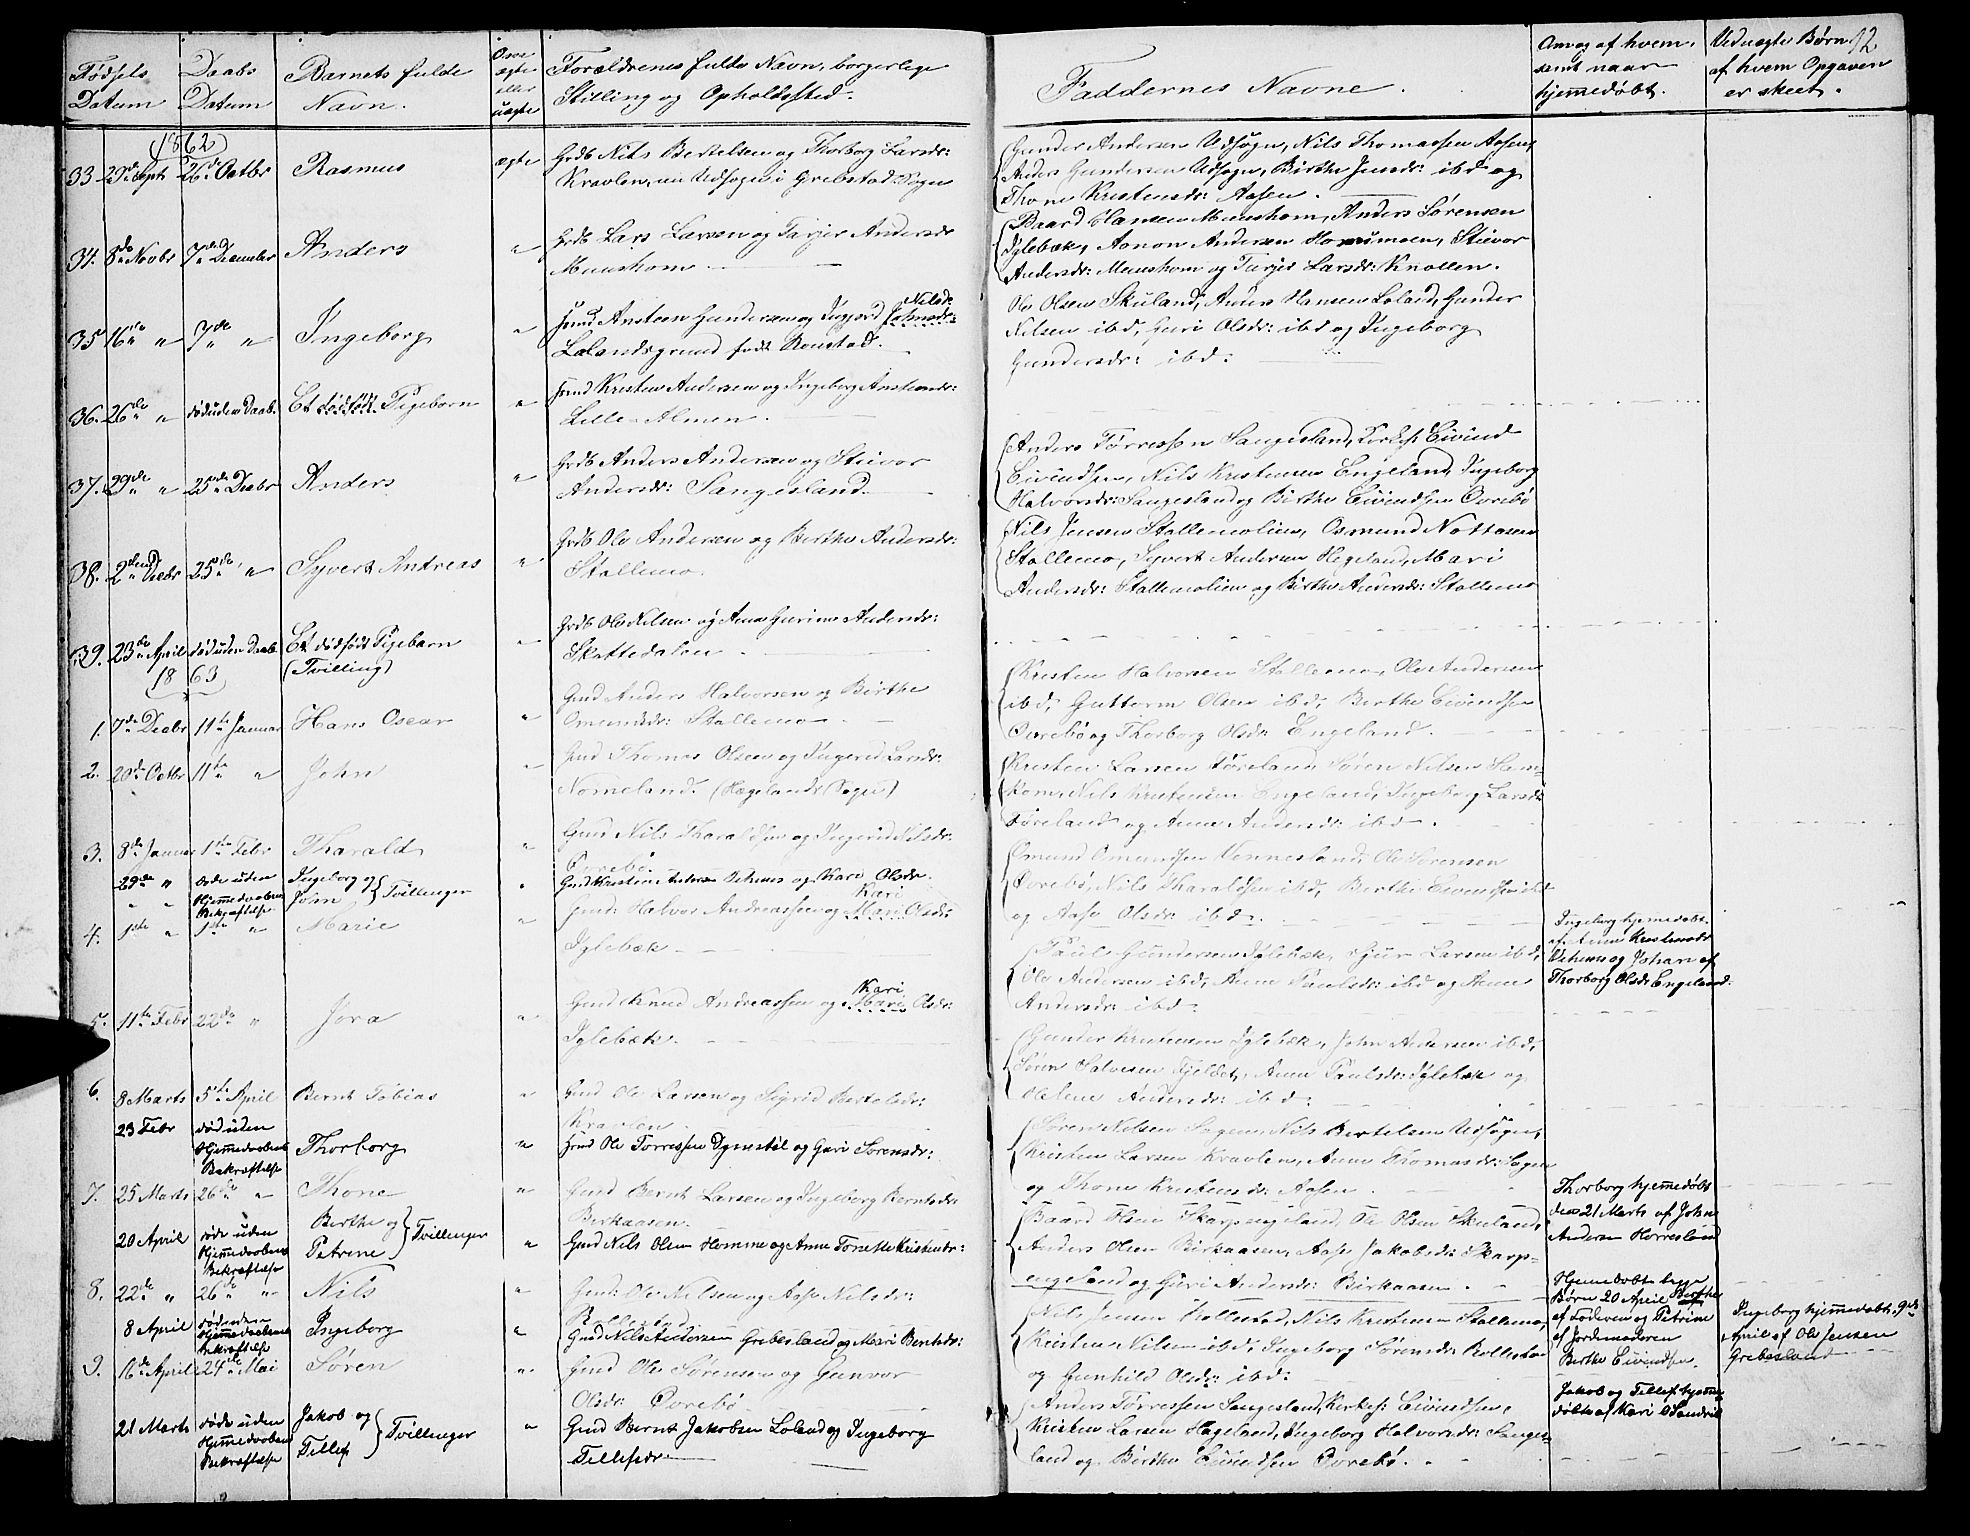 Fødsels Datum
Daabs Datum
Barnets fulde Navn.
Om ægte eller uægte
Forældrenes fulde Navn, borgerlige Stilling og Opholdssted.
Faddernes Navne.
Om og af hvem, samt naar hjemmedøbt.
Ved uægte Børn af hvem Opgaven er skeet.
12
1862
33. 29de Septb 26de Octbr Rasmus ægte Grdb Nils Bertelsen og Thorborg Larsdr:
Kravlen, nu Udsogn i Grebstad Sogn
Gunder Andersen Udsogn, Nils Thomassen Aasen,
Anders Gundersen Udsogn, Birthe Jensdr: ibd og
Thone Kristensdr: Aasen.
34. 8de Novbr 7de December Anders " Grdb Lars Larsen og Tarjer Andersdr
Muushom
Baard Hansen Muushom, Anders Sørensen
Iglebæk, Aanon Andersen Hommen, Stievor
Andersdr: Muushom og Tarjer Larsdr: Knollen.
35 16de " 7de " Ingeborg " Huusmd Ansteen Gundersen og Ingjerd Johnsdr: Nilsdr
Lolandsgrund født Roustad.
Ole Olsen Skuland, Anders Hansen Loland, Gunder
Nilsen ibd, Guri Olsdr: ibd og Ingeborg
Gundersdr: ibd:
36. 26de " død uden Daab. Et dødfødt Pigebarn " Huusmd Kristen Andersen og Ingeborg Anstensdr:
Lille-Almen.
37. 29de " 25de Decbr Anders " Grdb Anders Andersen og Stievor
Andersdr: Sangesland.
Anders Tørressen Sangesland, Kirkes: Eivind
Eivindsen, Nils Kristensen Engeland, Ingeborg
Halvorsdr: Sangesland og Birthe Eivindsen Øvrebø
38. 2den Decbr 25de " Syvert Andreas " Grdb Ole Andersen og Berthe Andersdr:
Stallemo.
Nils Jensen Stallemolien, Osmund Nottosen
Stallemo, Syvert Andersen Hegeland, Mari
Andersdr: Stallemolien og Birthe Andersdr: Stallemo
39. 23de April død uden Daab Et dødfødt Pigebarn " Grdb Ole Nilsen og Anne Gurine Andersdr:
(Tvilling) Skattedalen.
1863
1. 7de Decbr 11te Januar Hans Oscar " Gmd Anders Halvorsen og Birthe
Omundsdr: Stallemo.
Kristen Halvorsen Stallemo, Ole Andersen
ibd, Guttorm Olsen ibd, Berthe Eivindsen
Øvrebø og Thorborg Olsdr: Engeland.
2. 20de Octbr 11te " John " Gmd Thomas Olsen og Ingerid Larsdr:
Nomeland. (Hægelands Sogn)
Kristen Larsen Føreland, Søren Nilsen Hom-
kom, Nils Kristensen Engeland, Ingeborg Larsdr
Føreland og Anne Andersdr: ibd.
3. 8de Januar 1ste Febr Tharald " Gmd Nils Tharaldsen og Ingerid Nilsdr:
Øvrebø.
Omund Omundsen Vennesland, Ole Sørensen
Øvrebø, Nils Tharaldsen ibd, Berthe Eivindsen ibd
og Aase Olsdr: ibd.
29de " døde uden Hjemmedaabens Bekræftelse Ingeborg og John } Tvillinger " Gmd Kristen Andersen Uchens og Kari Olsdr.
Ingeborg hjemmedøbt
af Anne Kristensdr
Uchens og Johan af
Thorborg Olsdr Engeland:
4. 1ste " 1ste " Marie " Gmd: Halvor Andreassen og Mari Olsdr: Kari
Iglebæk
Paul Gundersen Iglebæk, Sjur Larsen ibd,
Ole Andersen ibd, Anne Paulsdr: ibd og Anne
Andersdr: ibd.
5. 11te Febr 22de " Jora " Gmd Knud Andreassen og Mari Olsdr: Kari
Iglebæk.
Gunder Kristensen Iglebæk, John Andersen ibd,
Søren Salvesen Fjeldet, Anne Paulsdr: Iglebæk og
Olene Andersdr: ibd.
6. 8 Marts 5te April Bernt Tobias " Gmd Ole Larsen og Sigrid Bertelsdr:
Kravlen.
Søren Nilsen Sogen, Nils Bertelsen Udsogn,
Kristen Larsen Kravlen, Anne Thomasdr: Sogen
og Thone Kristensdr: Aasen.
23 Febr død uden Hjemmedaabens Bekræftelse Thorborg " Hmd Ole Torressen Dynestøl og Guri Sorensdr:
Thorborg hjemmedøbt
den 21 Marts af John
Andersen Horresland
7. 25 Marts 26de " Thone " Gmd Bernt Larsen og Ingeborg Berntsdr:
Birkaasen.
Baard Olsen Skarpengeland, Ole Olsen Skuland,
Anders Olsen Birkaasen, Aase Jakobsdr: Skarp-
engeland og Guri Andersdr: Birkaasen.
20 April døde uden Hjemmedaabens Bekræftelse Berthe og Petrine } Tvillinger " Gmd Nils Olsen Homme og Anne Tonette Kristensdr:
Hjemmedøbt begge
Børn 20 April Berthe
af Faderen og Petrine
af Jordemoderen
Berthe Eivindsen.
8. 22de " 26de " Nils " Gmd: Ole Nilsen og Aase Nilsdr:
Rollestad.
Nils Jensen Rollestad, Nils Kristensen Stallemo,
Kristen Nilsen ibd, Ingeborg Sørensdr: Rollestad
og Gunhild Olsdr: ibd:
8 April død uden Hjemmedaabens Bekræftelse Ingeborg " Gmd Nils Andersen Grebesland og Mari Berntsdr:
Ingeborg hjemmedøbt 9de
April af Ole Jensen
Grebesland
9. 16de April 24de Mai Søren " Gmd Ole Sørensen og Gunvor
Olsdr: Øvrebø.
Anders Tørressen Sangesland, Kirkes: Eivindsen,
Kristen Larsen Hageland, Ingeborg Halvorsdr: Sanges-
land og Birthe Eivindsen Øvrebø.
21 Marts døde uden Hjemmedaabens Bekræftelse Jakob og Tillef } Tvillinger " Gmd Bernt Jakobsen Loland og Ingeborg
Tillefsdr:
Jakob og Tillef hjemme-
døbte af Kari O Sandvik